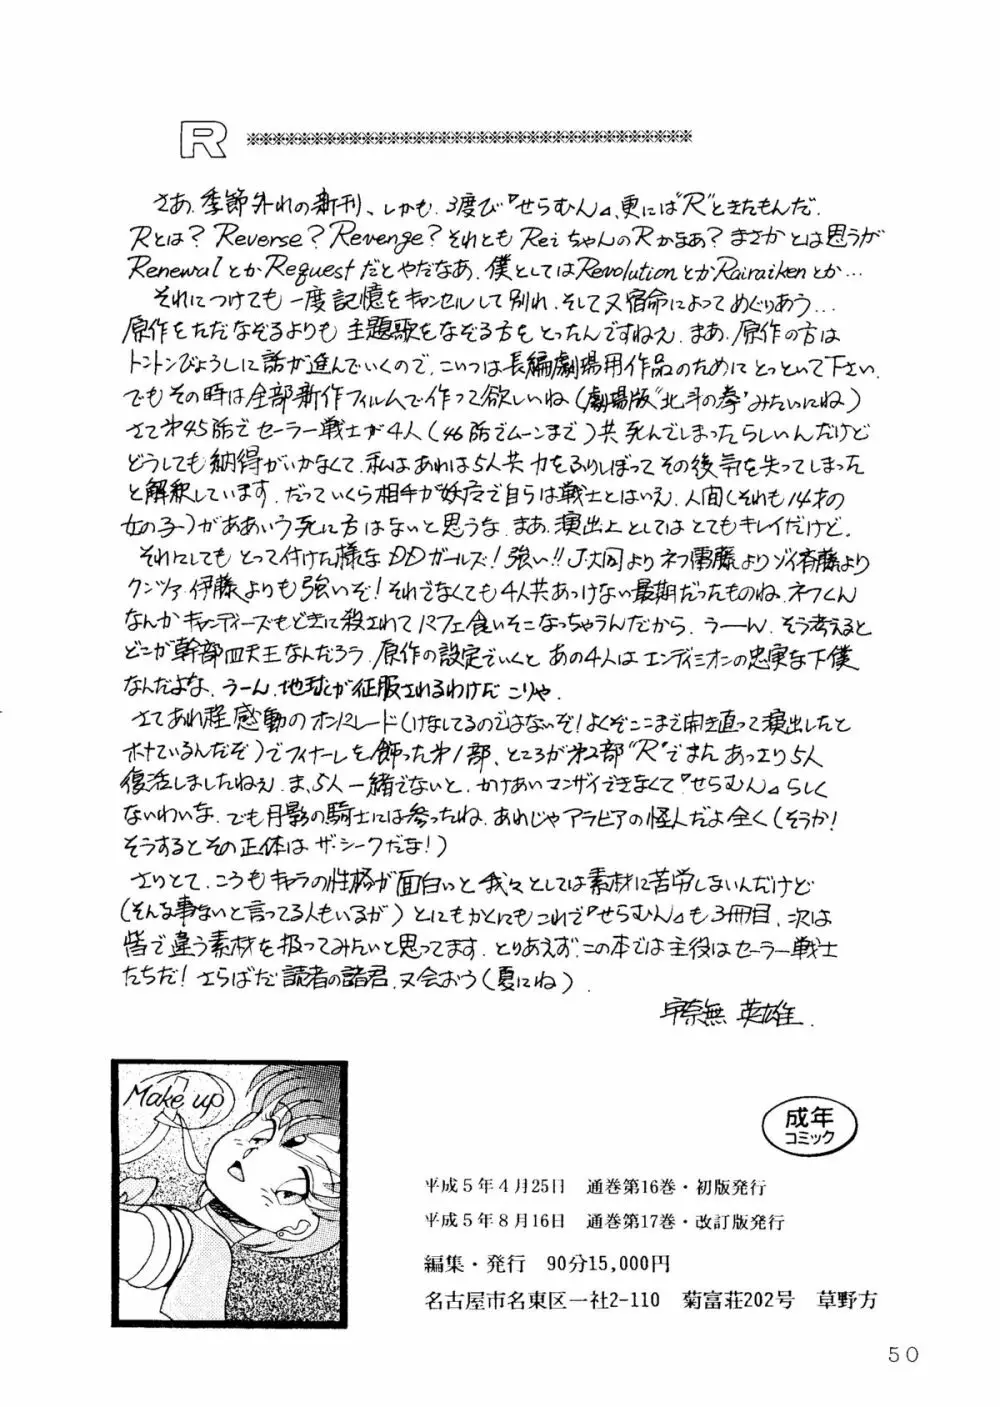 R
さあ、季節外れの新刊、しかも、3度び『せらむん』、更には"R"ときたもんだ.
Rとは? Reverse? Revenge? それとも Reiちゃんの Rかなあ? まさかとは思うが
Renewal とか Request だとやだなあ. 僕としては Revolution とか Rairaiken とか...
それにつけても一度記憶をキャンセルして別れ、そして又宿命によってめぐりあう...
原作をただなぞるよりも主題歌をなぞる方をとったんですねえ. まあ、原作の方は
トントンびょうしに話が進んでいくので、こいつは長編劇場用作品のためにとっといて下さい.
でもその時は全部新作フィルムで作って欲しいね(劇場版"北斗の拳"みたいにね)
さて才45話でセーラー戦士が4人(46話でムーンまで)共死んでしまったらしいんだけど
どうしても納得がいかなくて、私はあれは5人共力をふりしぼってその後気を失ってしまった
と解釈しています. だっていくら相手が妖魔で自らは戦士とはいえ、人間(それも14才の
女の子)がああいう死に方はないと思うな. まあ、演出上としてはとてもキレイだけど.
それにしてもとって付けた様なDDガールズ! 強い!! J・大同よりネフ齋藤よりゾイ斉藤より
クンツァ伊藤よりも強いぞ! それでなくても4人共あっけない最期だったものね. ネフくん
なんかキャンディーズもどきに殺されてパフェ食いそこなっちゃうんだから. うーーん. そう考えると
どこが幹部四天王なんだろう. 原作の設定でいくとあの4人はエンディミオンの忠実な下僕
なんだよな. うーん. 地球が征服されるわけだこりゃ.
さてあれ程感動のオンパレード(けなしてるのではないぞ! よくぞここまで開き直って演出したと
ホメているんだぞ)でフィナーレを飾った才1部、ところが才2部"R"でまたあっさり5人
復活しましたねえ. ま、5人一緒でないと、かけあいマンザイできなくて『せらむん』らしく
ないわいな. でも月影の騎士には参ったね. あれじゃアラビアの怪人だよ全く(そうか!
そうするとその正体はザ・シークだな!)
さりとて、こうもキャラの性格が面白いと我々としては素材に苦労しないんだけど
(そんな事ないと言ってる人もいるが)とにもかくにもこれで『せらむん』も3冊目、次は
皆で違う素材を扱ってみたいと思ってます. とりあえずこの本では主役はセーラー戦士
たちだ! さらばだ読者の諸君、又会おう(夏にね).
宇奈無 英雄.
Make up
成年
コミック
平成5年4月25日　通巻第16巻・初版発行
平成5年8月16日　通巻第17巻・改訂版発行
編集・発行　90分15,000円
名古屋市名東区一社2-110　菊富荘202号　草野方
50